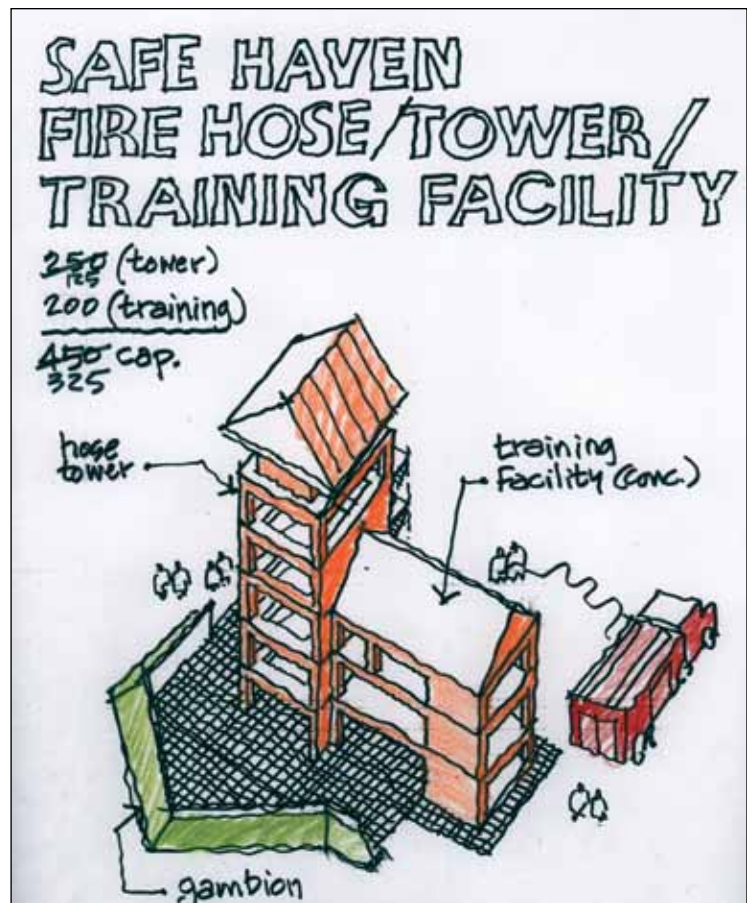 SAFE HAVEN
FIRE HOSE/TOWER/
TRAINING FACILITY
250 (tower)
125
200 (training)
450 cap.
325
hose
tower
training
Facility (conc.)
gambion